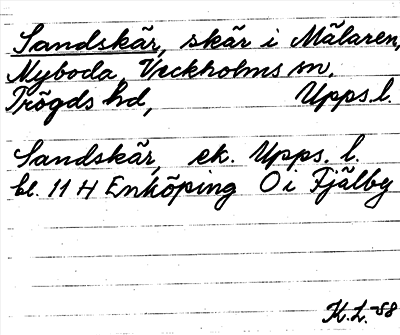 Sandskär, skär i Mälaren,
Nyboda, Veckholms sn,
Trögds hd, Upps. l.
Sandskär, ek. Upps. l.
bl. 11 H Enköping O i Fjälby
K.L. -58